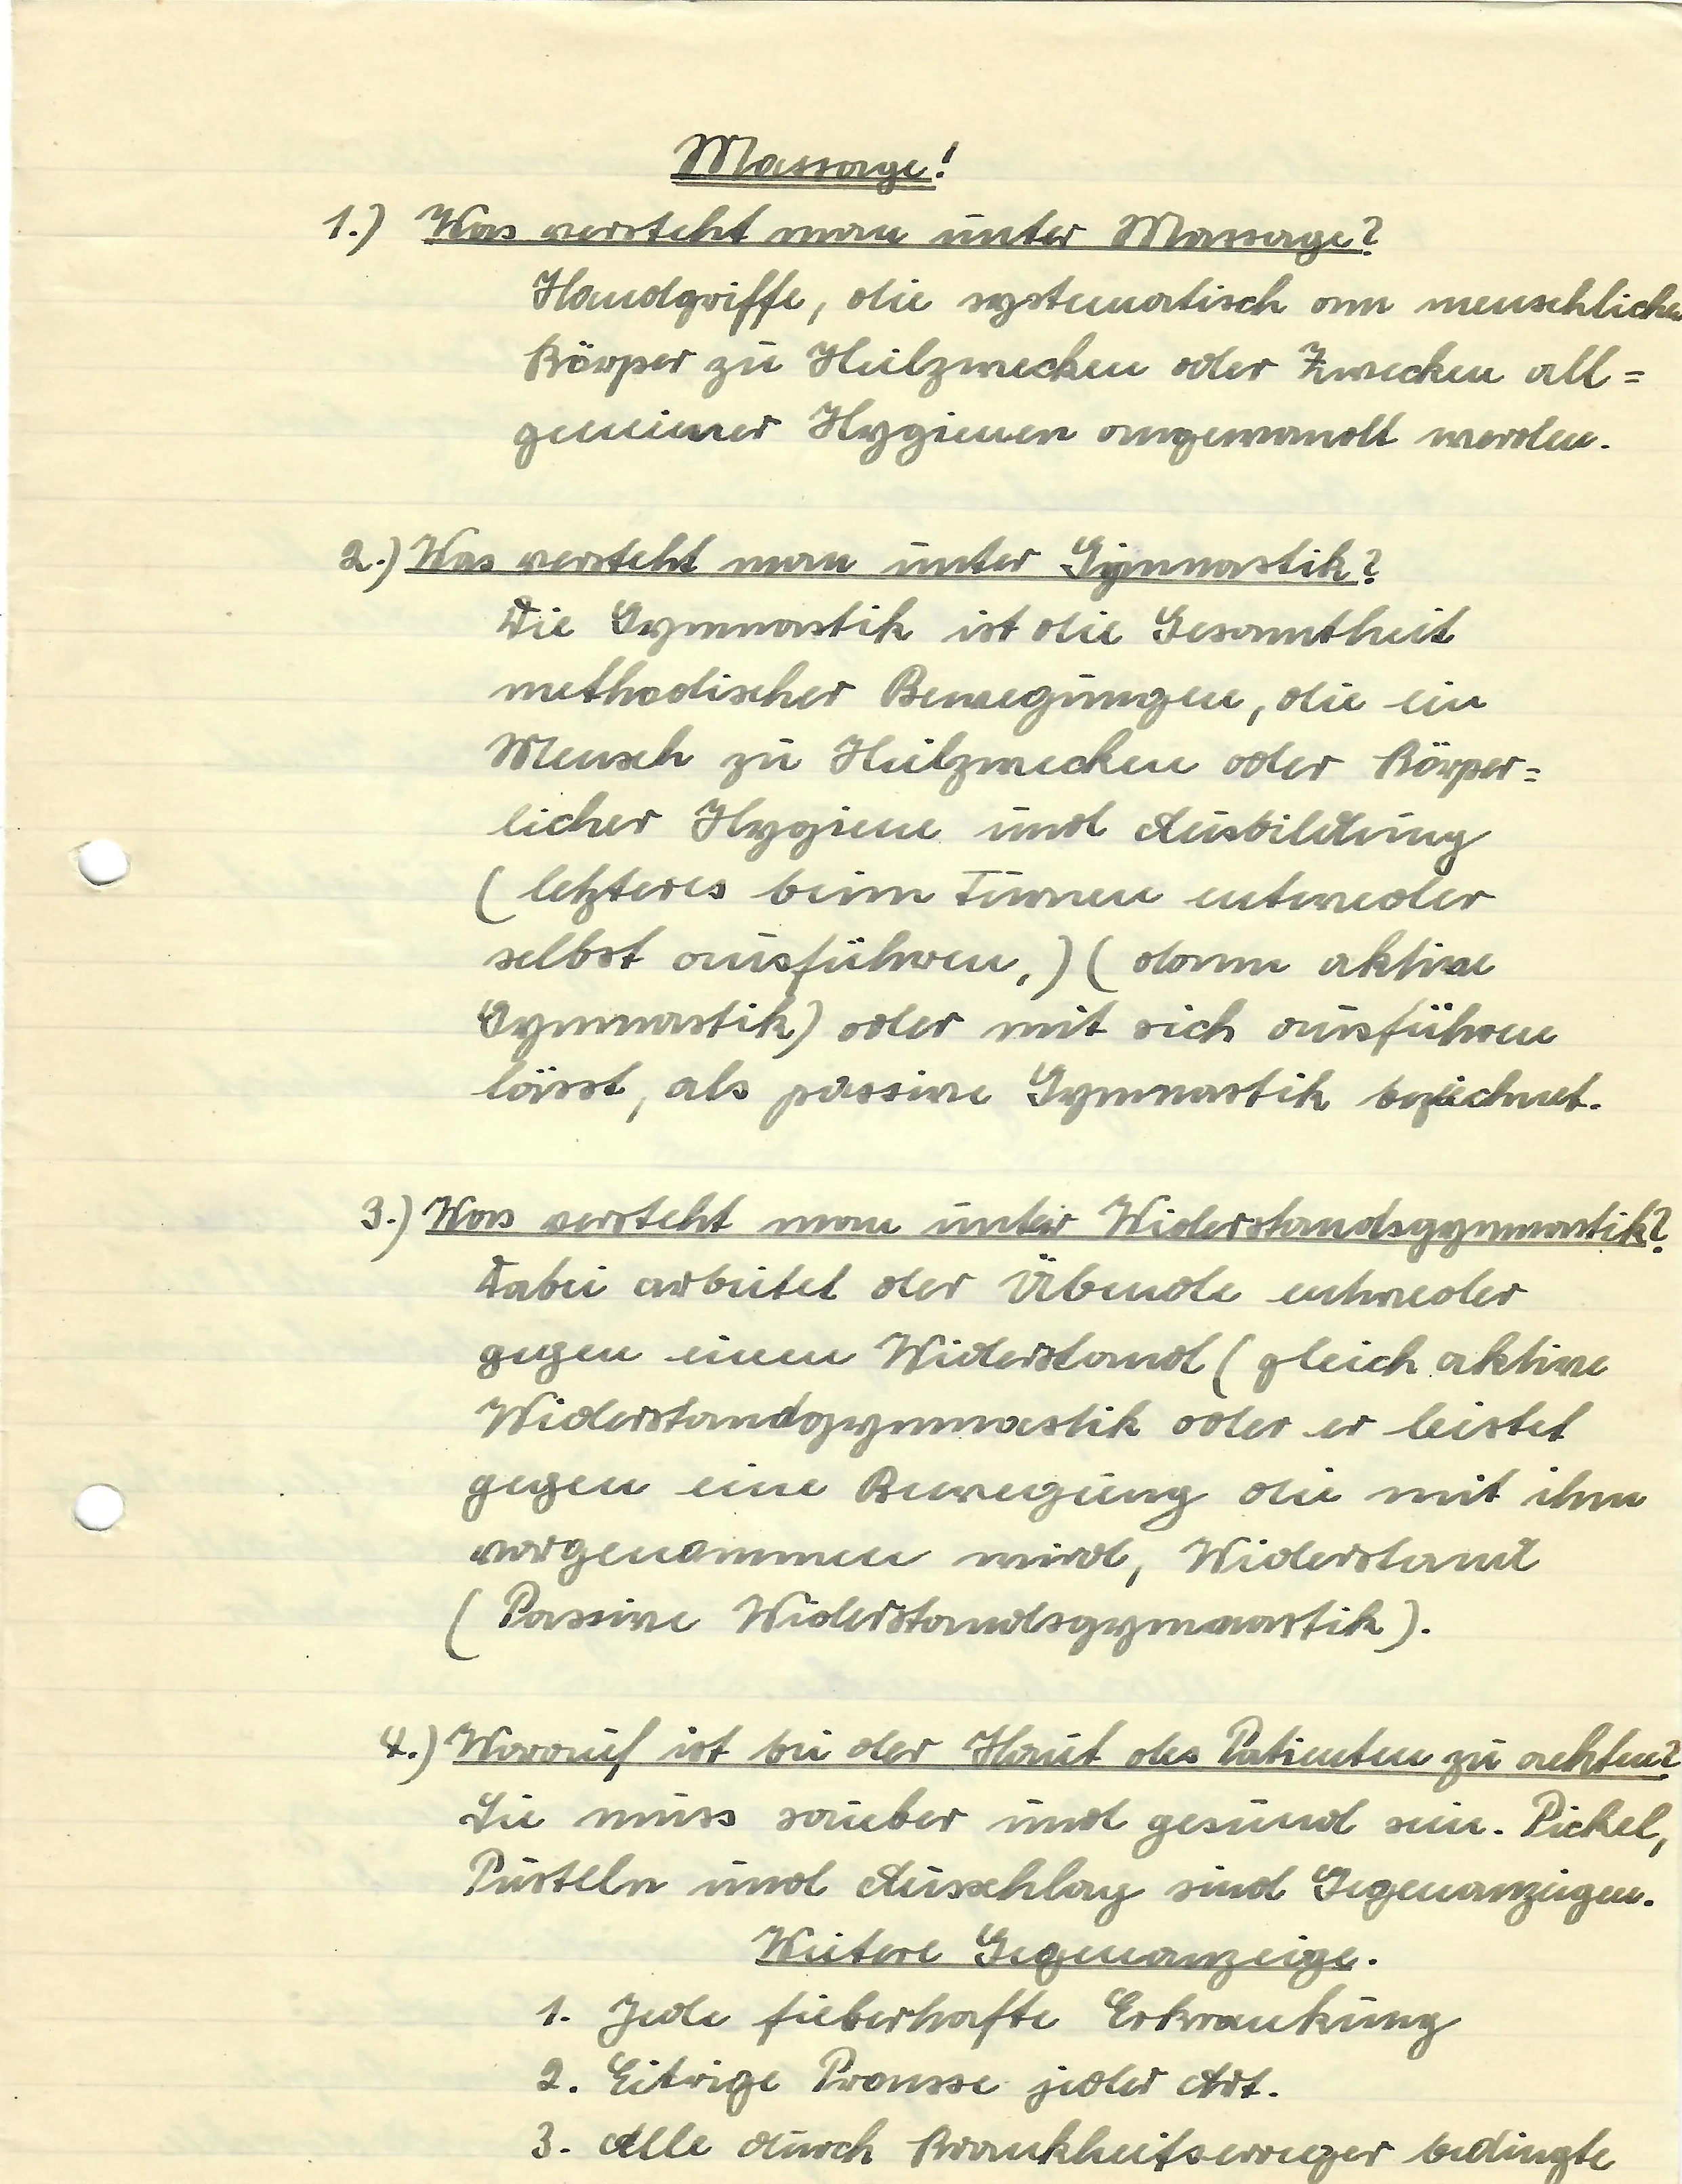 Massage!
1.) Was versteht man unter Massage?
Handgriffe, die systematisch am menschlichen
Körper zu Heilzwecken oder Zwecken all=
gemeiner Hygienen angewandt werden.
2.) Was versteht man unter Gymnastik?
Die Gymnastik ist die Gesamtheit
methodischer Bewegungen, die ein
Mensch zu Heilzwecken oder Körper=
licher Hygiene und Ausbildung
( letzteres beim Turnen entweder
selbst ausführen,) ( dann aktive
Gymnastik) oder mit sich ausführen
lässt, als passive Gymnastik bezeichnet.
3.) Was versteht man unter Widerstandsgymnastik?
Dabei arbeitet der Übende entweder
gegen einen Widerstand ( gleich aktive
Widerstandgymnastik oder er leistet
gegen eine Bewegung die mit ihm
vorgenommen wird, Widerstand
( Passive Widerstandsgymnastik).
4.) Worauf ist bei der Haut des Patienten zu achten?
Sie muss sauber und gesund sein. Pickel,
Pusteln und Ausschlag sind Gegenanzeigen.
Weitere Gegenanzeige.
1. Jede fieberhafte Erkrankung
2. Eitrige Prozesse jeder Art.
3. Alle durch Krankheitserreger bedingte